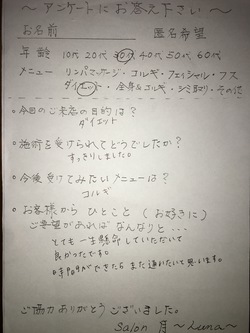 ～アンケートにお答え下さい～
お名前 匿名希望
年齢 10代 20代 30代 40代 50代 60代
メニュー リンパマッサージ・コルギ・フェイシャル・フス
ダイエット・全身&コルギ・シミ取り・その他
○今回のご来店の目的は?
ダイエット
○施術を受けられてどうでしたか?
すっきりしました。
○今後受けてみたいメニューは?
コルギ
○お客様から ひとこと (お好きに)
ご要望があれば なんなりと…
とても一生懸命していただいて
良かったです。
時間ができたら また通いたいと思います。
ご協力ありがとうございました。
Salon 月～Luna～